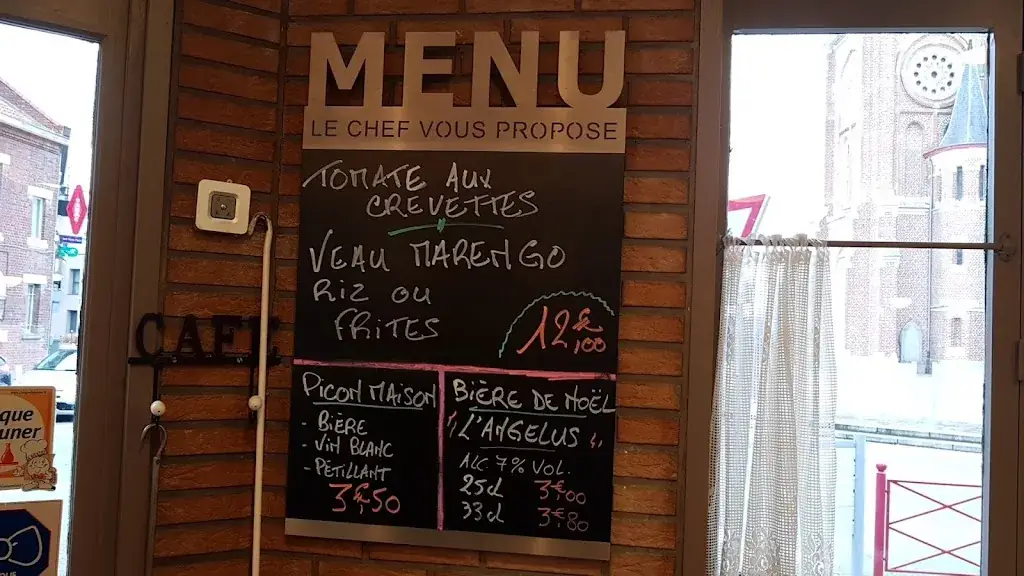 MENU
LE CHEF VOUS PROPOSE
TOMATE AUX
CREVETTES
VEAU MARENGO
RIZ OU
FRITES
12€,00
PICON MAISON
- BIÈRE
- VIN BLANC
- PÉTILLANT
3€,50
BIÈRE DE NOËL
" L'ANGELUS "
ALC 7% VOL.
25cl 3€,00
33cl 3€,80
CAFE
que
uner